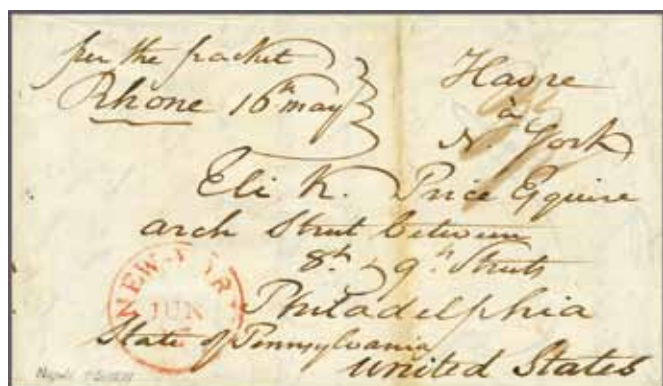 per the packet
Rhone 16th may
Havre
à
N. York
Eli K. Price Esquire
arch Street between
8th & 9th Streets
Philadelphia
State of Pennsylvania
United States
NEW-YORK
JUN